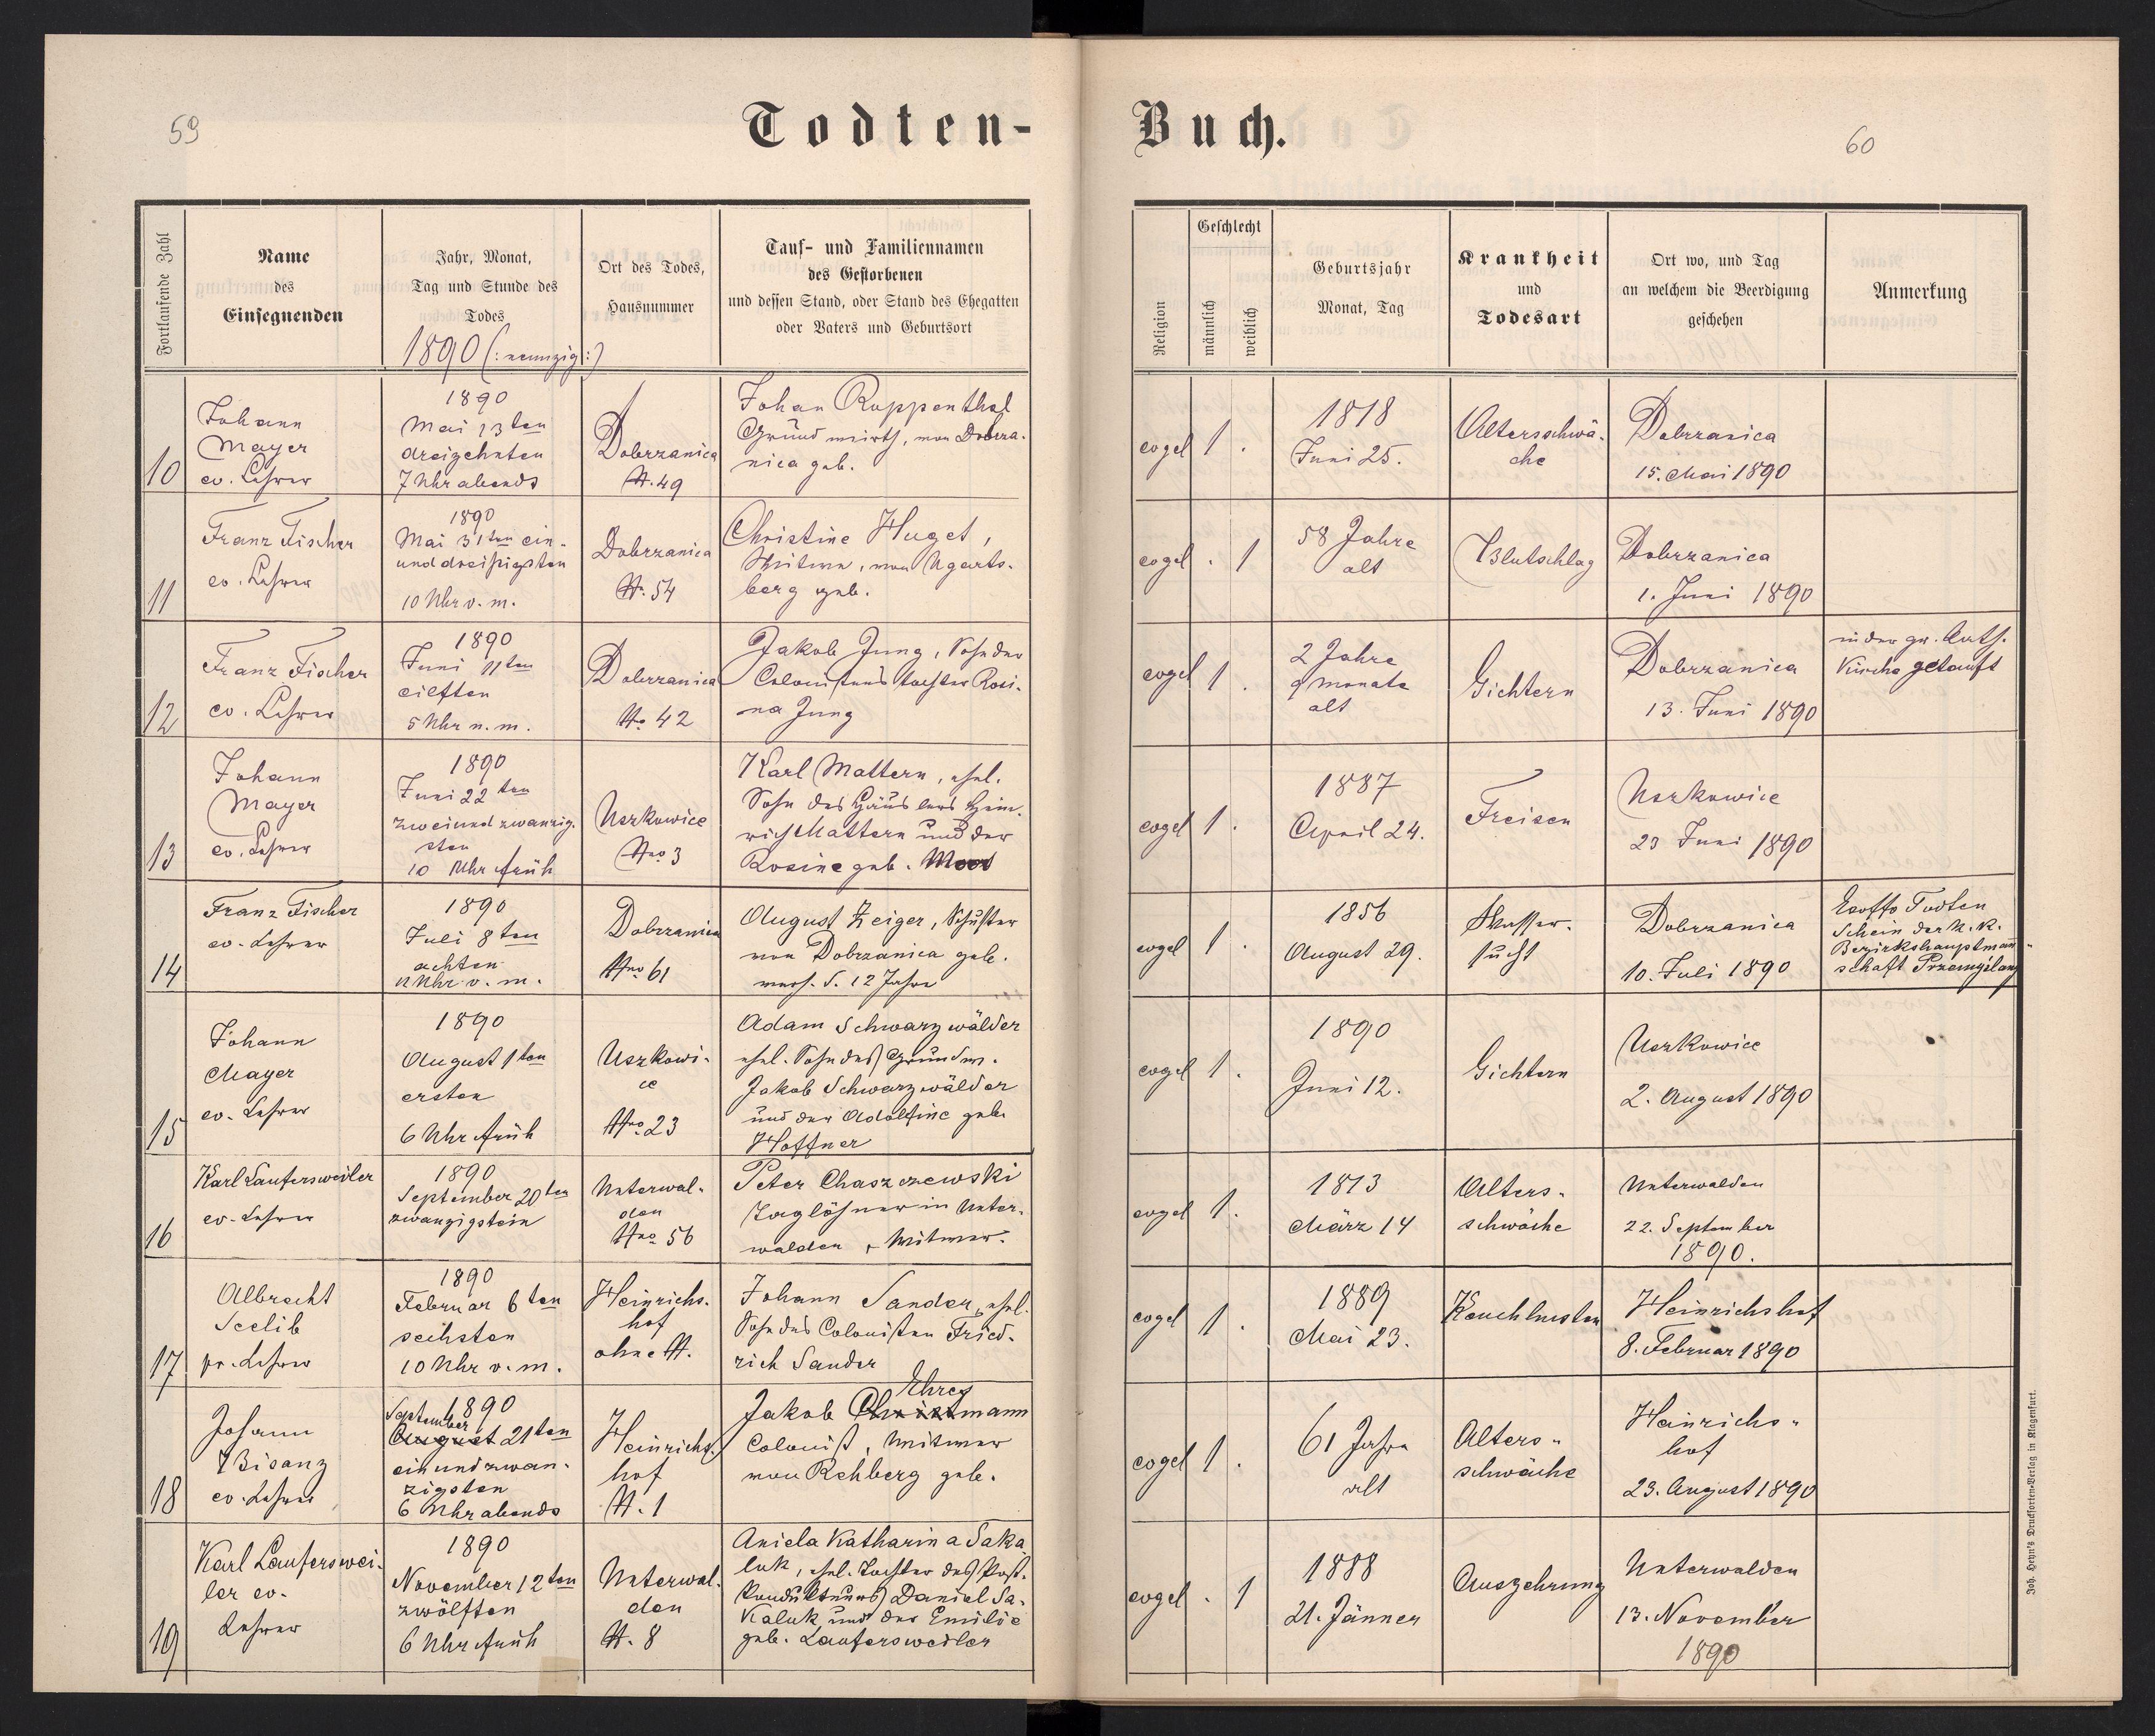 59
Todten-
Buch.
60
Fortlaufende Zahl
Name
des
Einsegnenden
Jahr, Monat,
Tag und Stunde des
Todes
1890 (:neunzig:)
Ort des Todes,
Hausnummer
Tauf- und Familiennamen
des Gestorbenen
und dessen Stand, oder Stand des Ehegatten
oder Vaters und Geburtsort
Religion
Geschlecht
männlich
weiblich
Geburtsjahr
Monat, Tag
Krankheit
und
Todesart
Ort wo, und Tag
an welchem die Beerdigung
geschehen
Anmerkung
10
Johann
Mayer
ev. Lehrer
1890
Mai 13ten
dreizehnten
7 Uhr abends
Dobrzanica
N. 49
Johan Ruppenthal
Grundwirth, von Dobrza-
nica geb.
evgel
1 .
1818
Juni 25.
Altersschwä-
che
Dobrzanica
15. Mai 1890
11
Franz Fischer
ev. Lehrer
1890
Mai 31ten ein-
unddreißigsten
10 Uhr v. m.
Dobrzanica
N. 54
Christine Huget,
Witwe, von Ugarts-
berg geb.
evgel
. 1
58 Jahre
alt
Blutschlag
Dobrzanica
1. Juni 1890
12
Franz Fischer
ev. Lehrer
1890
Juni 11ten
eilften
5 Uhr n. m.
Dobrzanica
No 42
Jakob Jung, Sohn der
Colonistenstochter Rosi-
na Jung
evgel
1 .
2 Jahre
9 monate
alt
Gichtern
Dobrzanica
13. Juni 1890
in der gr. kath.
Kirche getauft
13
Johann
Mayer
ev. Lehrer
1890
Juni 22ten
zweiundzwanzig-
sten
10 Uhr früh
Uszkowice
Nro 3
Karl Mattern, ehel.
Sohn des Häuslers Hein-
rich Mattern und der
Rosine geb. Moos
evgel
1 .
1887
April 24.
Freisen
Uszkowice
23 Juni 1890
14
Franz Fischer
ev. Lehrer
1890
Juli 8ten
achten
11 Uhr v. m.
Dobrzanica
Nro 61
August Zeiger, Schuster
von Dobrzanica geb.
verh. s. 12 Jahre
evgel
1 .
1856
August 29.
Wasser-
sucht
Dobrzanica
10. Juli 1890
Todten
Schein der k. k.
Bezirkshauptmann-
schaft Przemyślany
15
Johann
Mayer
ev. Lehrer
1890
August 1ten
ersten
6 Uhr früh
Uszkowi-
ce
Nro 23
Adam Schwarzwälder
ehel. Sohn des Grundw.
Jakob Schwarzwälder
und der Adolfine geb.
Hoffner
evgel
1 .
1890
Juni 12.
Gichtern
Uszkowice
2. August 1890
16
Karl Laufersweiler
ev. Lehrer
1890
September 20ten
zwanzigstein
Unterwal-
den
Nro 56
Peter Chaszczewski
Taglöhner in Unter-
walden, Witwer.
evgel
1 .
1813
März 14
Alters-
schwäche
Unterwalden
22. September
1890.
17
Albrecht
Seelib
pr. Lehrer
1890
Februar 6ten
sechsten
10 Uhr v. m.
Heinrichs-
hof
ohne N.
Johann Sander, ehel.
Sohn des Colonisten Fried-
rich Sander
evgel
1 .
1889
Mai 23.
Keuchhusten
Heinrichshof
8. Februar 1890
18
Johann
Bisanz
ev. Lehrer
1890
September
August 21ten
einundzwan-
zigsten
6 Uhr abends
Heinrichs-
hof
N. 1
Ehres
Jakob Christmann
Colonist, Witwer
von Rehberg geb.
evgel
1 .
61 Jahre
alt
Alters-
schwäche
Heinrichs-
hof
23. August 1890
19
Karl Lauferswei-
ler ev.
Lehrer
1890
November 12ten
zwölften
6 Uhr früh
Unterwal-
den
N. 8
Aniela Katharina Saka
luk, ehel. Tochter des Post-
kondukteurs Daniel Sa-
kaluk und der Emilie
geb. Laufersweiler
evgel
. 1
1888
21. Jänner
Auszehrung
Unterwalden
13. November
1890
Joh. Heyn's Drucksorten-Verlag in Klagenfurt.